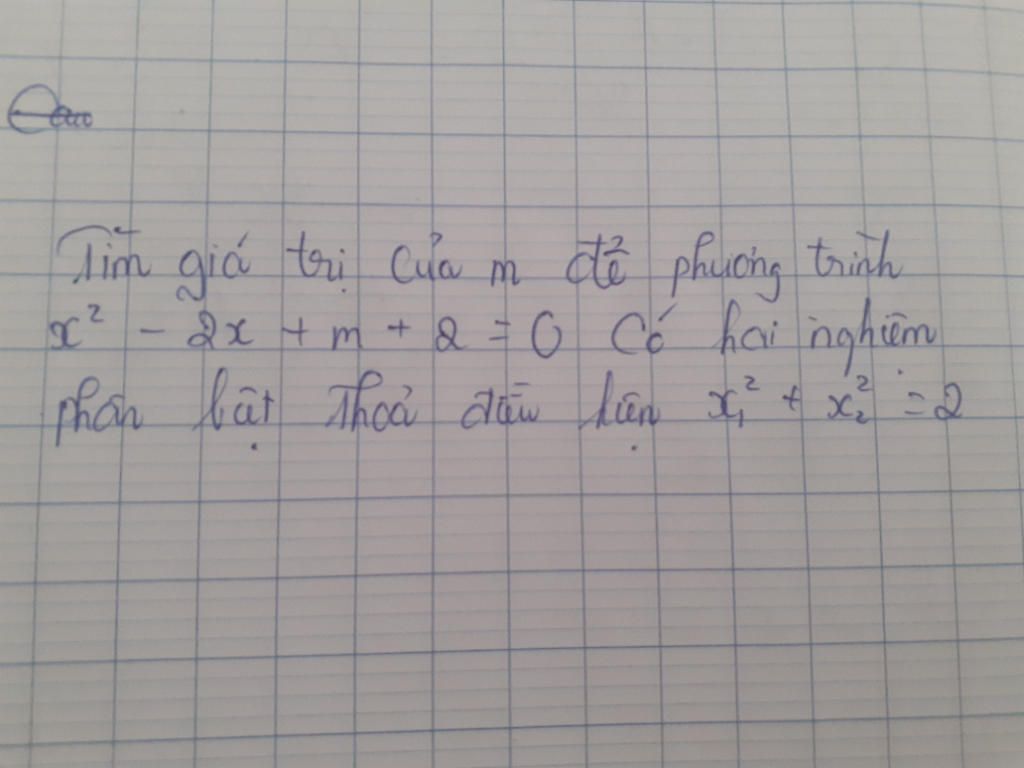 Tìm giá trị của m để phương trình
x² - 2x + m + 2 = 0 Có hai nghiệm
phân biệt Thoả điều kiện x₁² + x₂² = 2